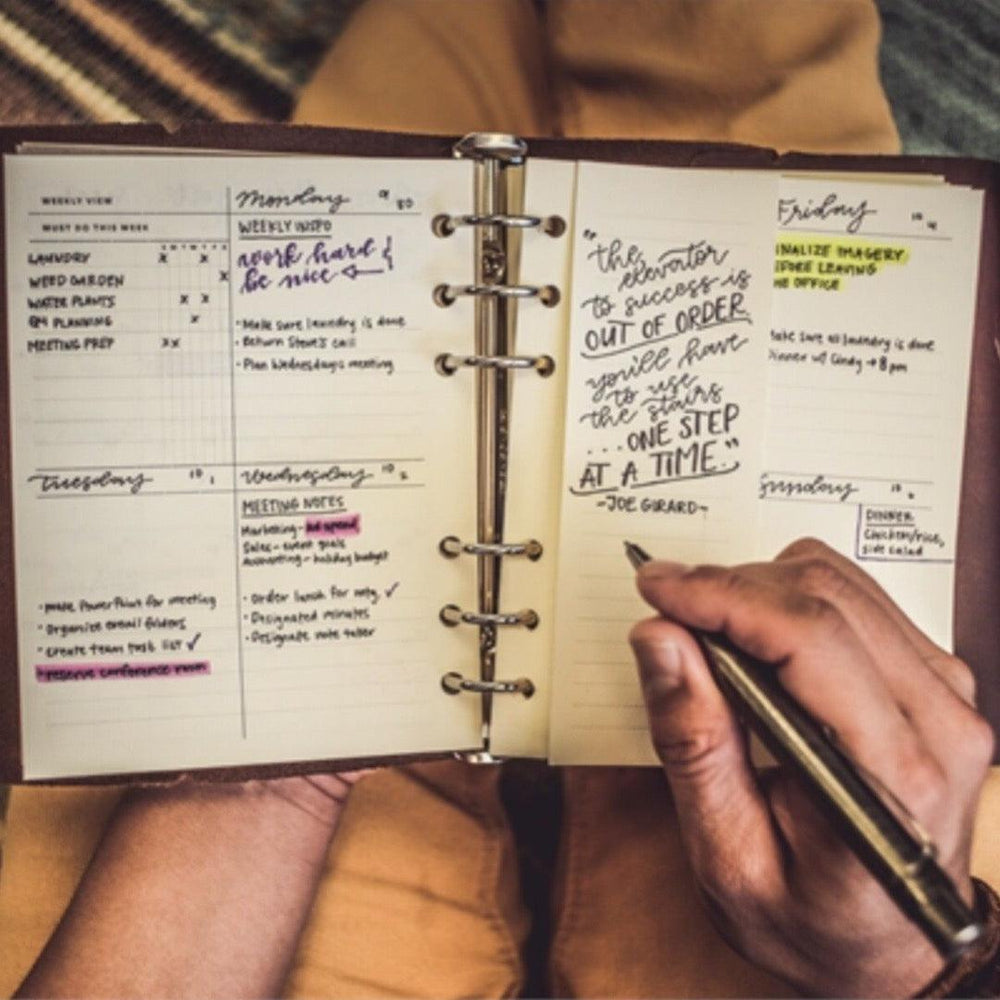 WEEKLY VIEW
MUST DO THIS WEEK
S M T W T F S
LAUNDRY X X
WEED GARDEN X
WATER PLANTS X X
PLANNING X
MEETING PREP XX
Monday 9 30
WEEKLY INSPO
work hard &
be nice
• Make sure laundry is done
• Return Steve's call
• Plan Wednesday's meeting
Tuesday 10 1
• make PowerPoint for meeting
• Organize email folders
• create team task list ✓
• reserve conference room
Wednesday 10 2
MEETING NOTES
Marketing - ad spend
Sales - event goals
Accounting - holiday budget
• Order lunch for mtg. ✓
• Designated minutes
• Designate note taker
"the
elevator
to success is
OUT OF ORDER.
you'll have
to use
the stairs
...ONE STEP
AT A TIME."
-JOE GIRARD-
Friday 10 4
INALIZE IMAGERY
EFORE LEAVING
HE OFFICE
Make sure all laundry is done
Dinner w/ Cindy → 8 pm
Sunday 10
DINNER
Chicken/rice,
side salad